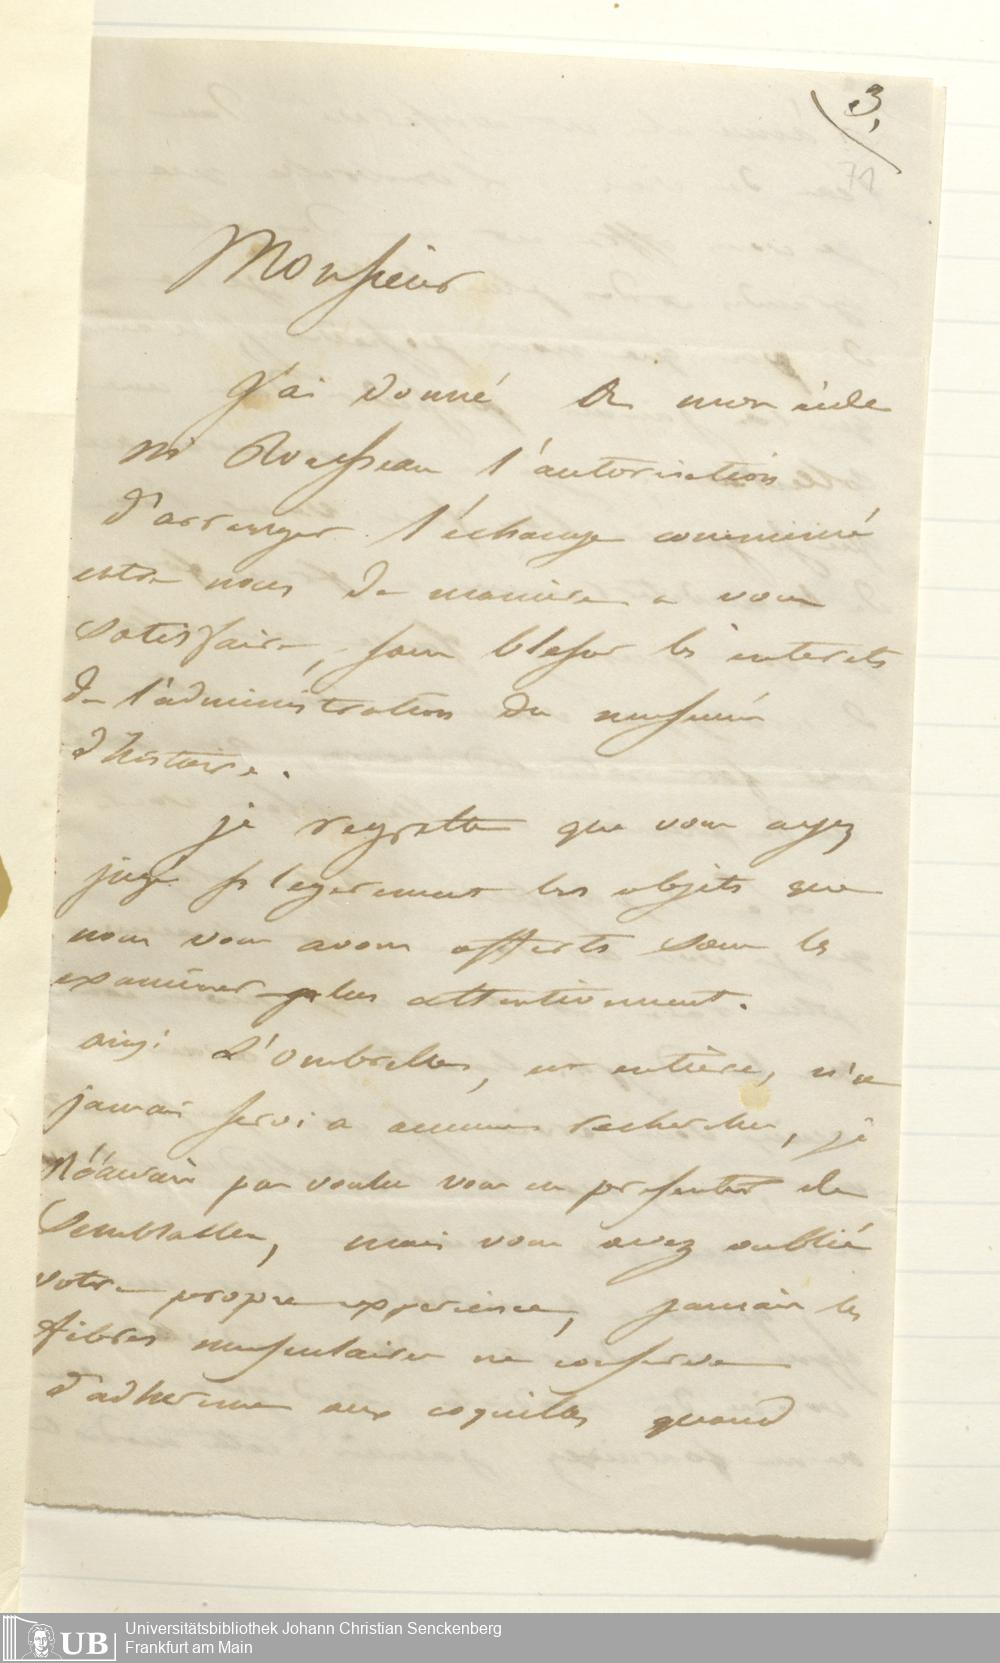 3,
71
Monsieur
J'ai donné a mon aide
Mr Rousseau l'autorisation
d'arranger l'échange convenu
entre nous de maniere a vous
satisfaire, sans blesser les interets
de l'administration du museum
d'histoire.
je regrette que vous ayez
jugé si legerement les objets que
nous vous avons offerts sans les
examiner plus attentivement.
ainsi L'Ombrelle, est entière, n'a
jamais servi a aucunes recherches, je
n'aurais pas voulu vous en presenter de
Semblables, mais vous avez oublié
votre propre experience, jamais les
fibres musculaires ne conserve
d'adherence aux coquilles quand
UB
Universitätsbibliothek Johann Christian Senckenberg
Frankfurt am Main